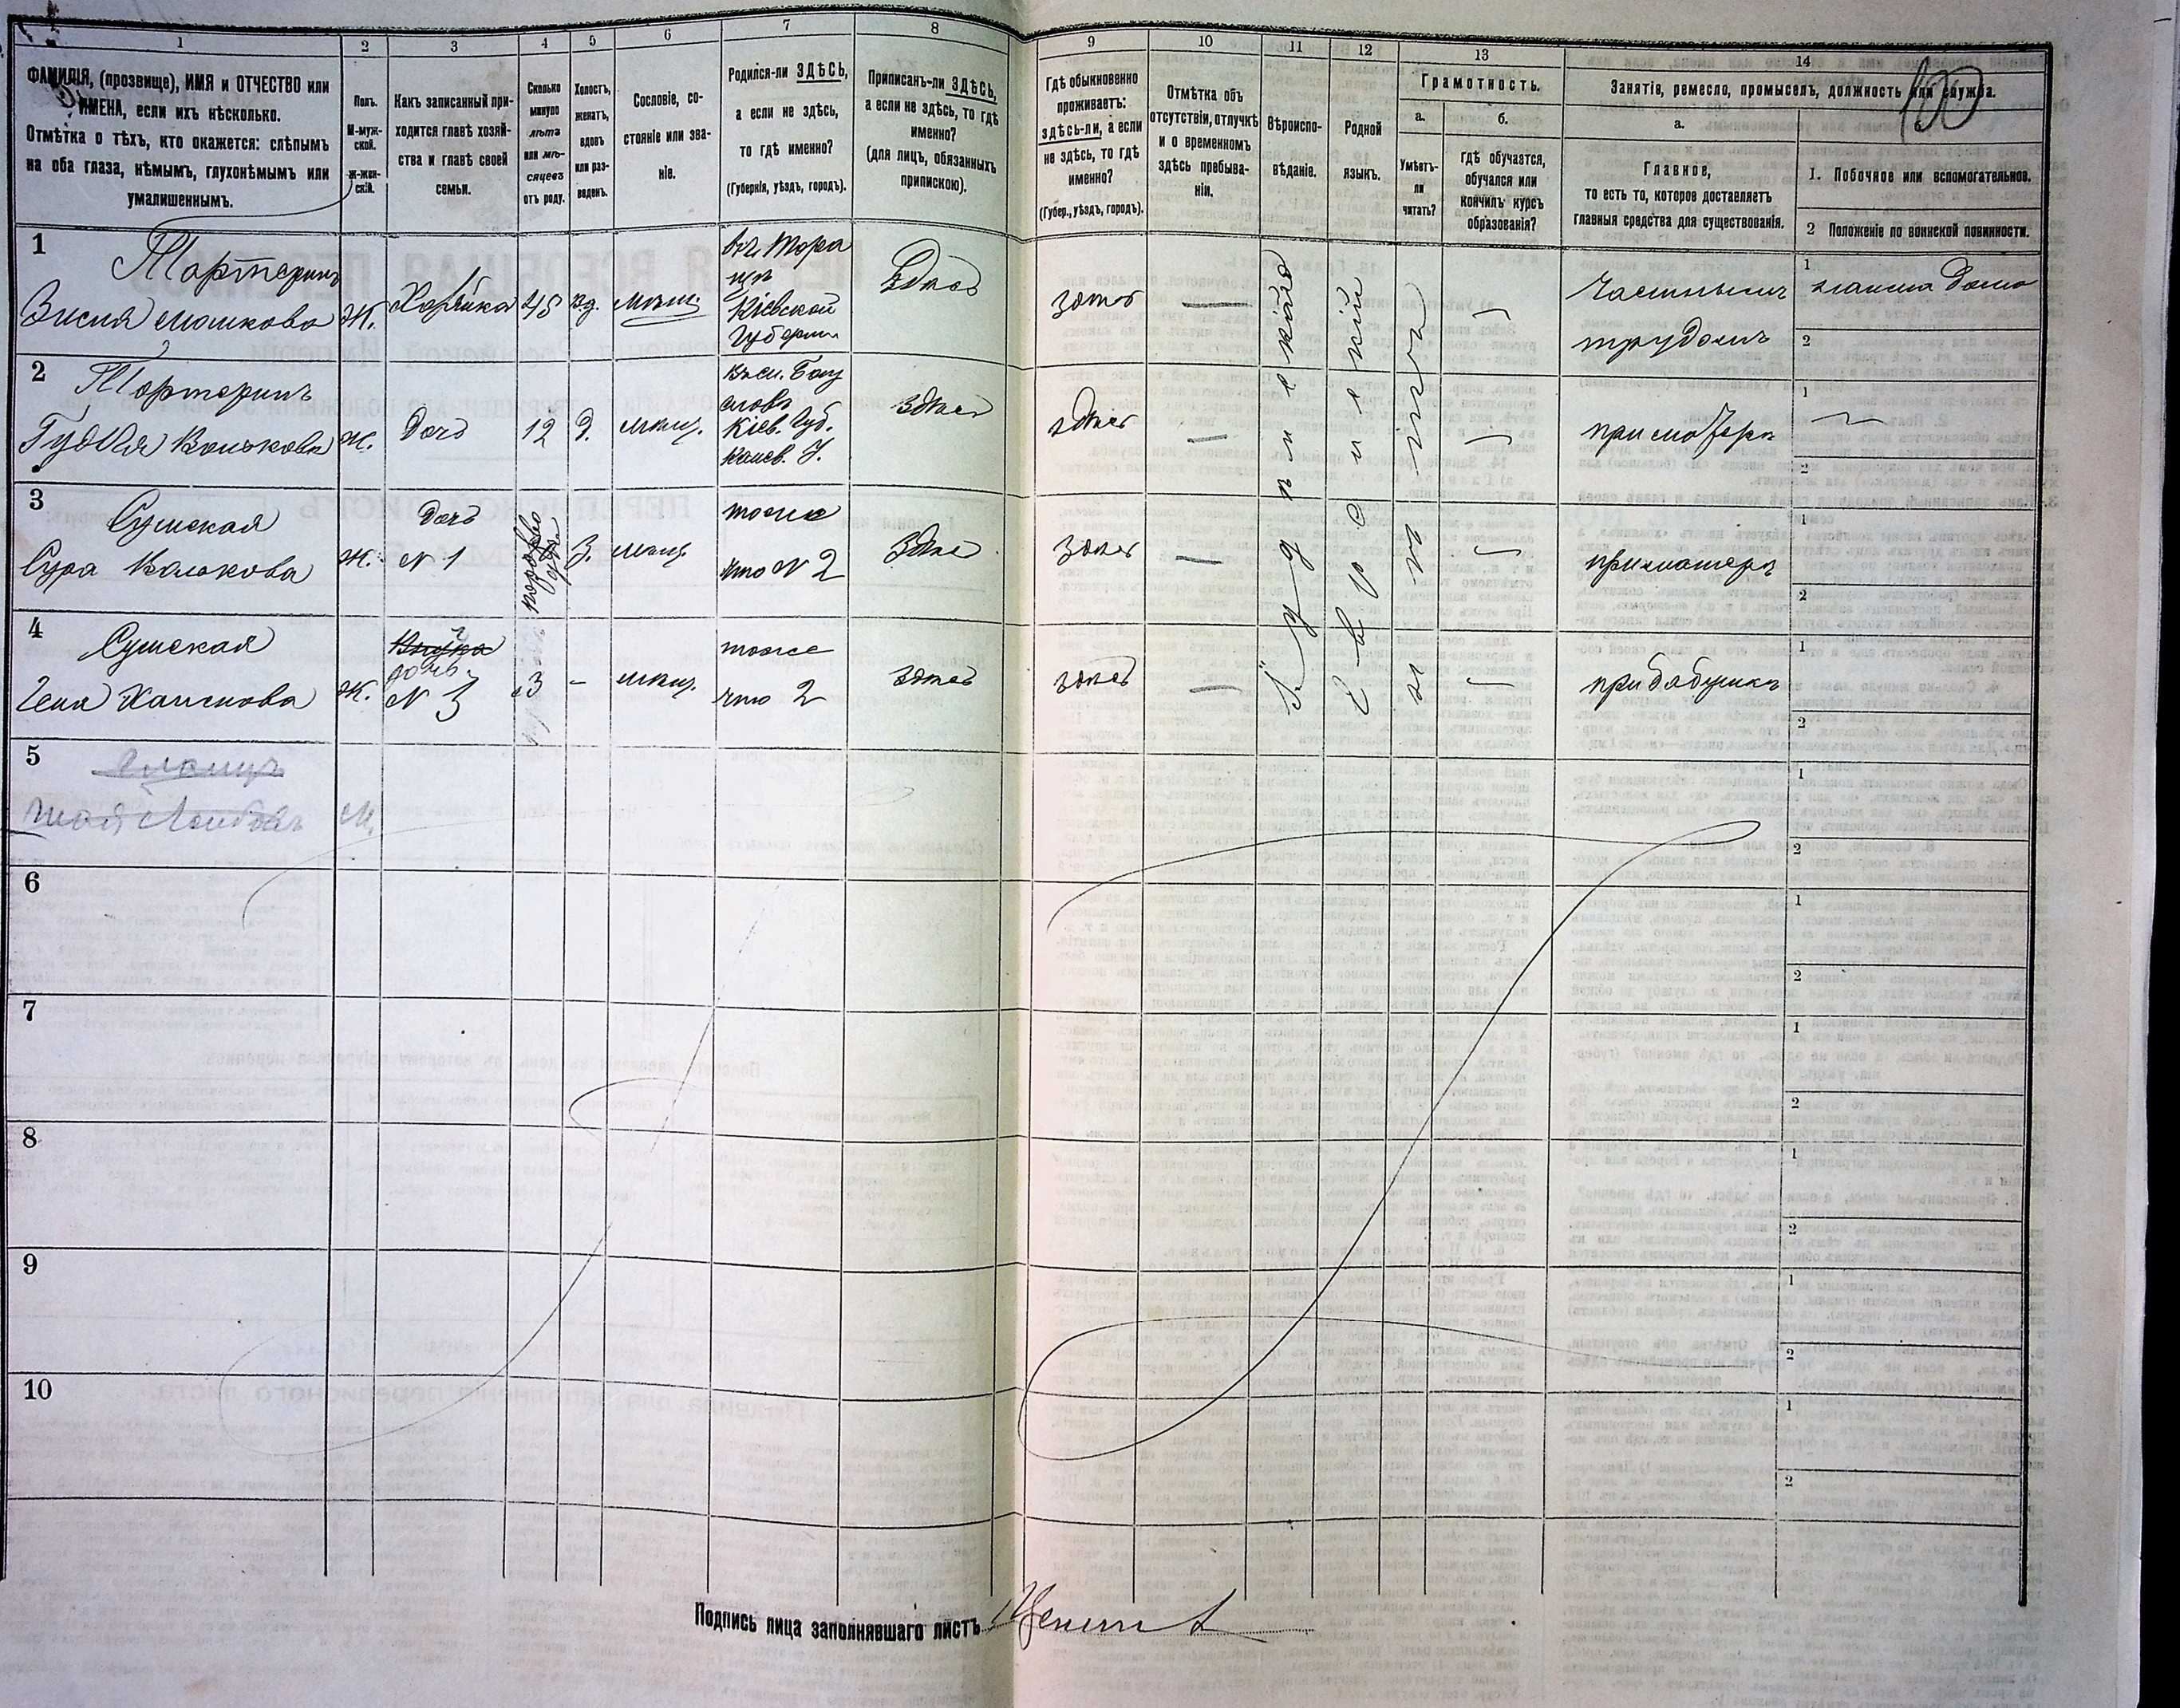 1
2
3
4
5
6
7
8
ФАМИЛІЯ, (прозвище), ИМЯ и ОТЧЕСТВО или
ИМЕНА, если ихъ нѣсколько.
Отмѣтка о тѣхъ, кто окажется: слѣпымъ
на оба глаза, нѣмымъ, глухонѣмымъ или
умалишеннымъ.
Полъ.
М-муж-
ской.
Ж-жен-
скій.
Какъ записанный при-
ходится главѣ хозяй-
ства и главѣ своей
семьи.
Сколько
минуло
лѣтъ
или мѣ-
сяцевъ
отъ роду.
Холостъ,
женатъ,
вдовъ
или раз-
веденъ.
Сословіе, со-
стояніе или зва-
ніе.
Родился-ли ЗДѢСЬ,
а если не здѣсь,
то гдѣ именно?
(Губернія, уѣздъ, городъ).
Приписанъ-ли ЗДѢСЬ,
а если не здѣсь, то гдѣ
именно?
(для лицъ, обязанныхъ
припискою).
9
10
11
12
13
14
Гдѣ обыкновенно
проживаетъ:
здѣсь-ли, а если
не здѣсь, то гдѣ
именно?
(Губер., уѣздъ, городъ).
Отмѣтка объ
отсутствіи, отлучкѣ
и о временномъ
здѣсь пребыва-
ніи.
Вѣроиспо-
вѣданіе.
Родной
языкъ.
Грамотность.
а.
Умѣетъ-
ли
читать?
б.
Гдѣ обучается,
обучался или
кончилъ курсъ
образованія?
Занятіе, ремесло, промыселъ, должность или служба.
100
а.
Главное,
то есть то, которое доставляетъ
главныя средства для существованія.
1. Побочное или вспомогательное.
2 Положеніе по воинской повинности.
1
Мошкова
Ж.
Хозяйка
45
вд.
мѣщ.
Кіевской
Губерніи
Здѣсь
здѣсь
Іудейская
Еврейскій
нѣтъ
Частнымъ
трудомъ
1
2
2
Гудля Вольковa
ж.
Дочь
12
д.
мѣщ.
Кіев. Губ.
Канев. У.
здѣсь
здѣсь
при матери
1
2
3
Сушская
Сура Волькова
ж.
Дочь
N 1
З.
мѣщ.
тоже
что N 2
здѣсь
здѣсь
при матери
1
2
4
Сушская
Хаимова
ж.
Внучка
дочь
N 3
3
мѣщ.
тоже
что 2
здѣсь
здѣсь
при бабушкѣ
1
2
5
М.
1
2
6
1
2
7
1
2
8
1
2
9
1
2
10
1
2
Подпись лица заполнявшаго листъ